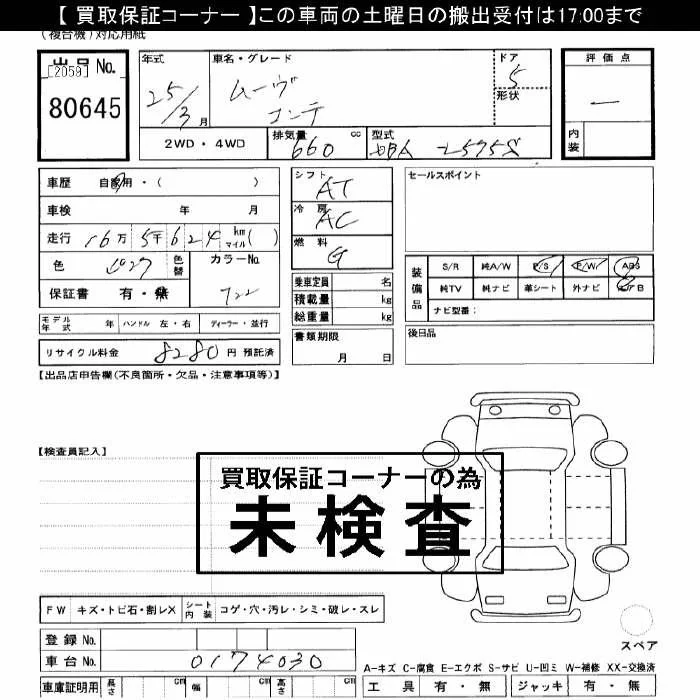 【 買取保証コーナー 】この車両の土曜日の搬出受付は17:00まで
(複合機)対応用紙
出品 No.
[2059]
80645
年式
25/3 月
車名・グレード
ムーヴ
コンテ
ドア
5
形状
評価点
内装
2WD・4WD
排気量 660 cc
型式 DBA L575S
車歴 自家用・( )
車検 年 月
走行 16万 5千 6 2 4 km マイル( )
色
色替
カラーNo.
722
保証書 有・無
シフト AT
冷房 AC
燃料 G
乗車定員 名
積載量 kg
総重量 kg
書類期限
月 日
セールスポイント
装備品
S/R 純A/W P/S P/W ABS
純TV 純ナビ 革シート 外ナビ エアB
ナビ型番:
後日品
モデル年式 年 ハンドル 左・右 ディーラー・並行
リサイクル料金 8280 円 預託済
【出品店申告欄(不良箇所・欠品・注意事項等)】
【検査員記入】
買取保証コーナーの為
未検査
FW キズ・トビ石・割レX シート内装 コゲ・穴・汚レ・シミ・破レ・スレ
登録 No.
車台 No. 0174030
車庫証明用 長さ cm 幅 cm 高さ cm
スペア
A-キズ C-腐食 E-エクボ S-サビ U-凹ミ W-補修 XX-交換済
工具 有・無 ジャッキ 有・無